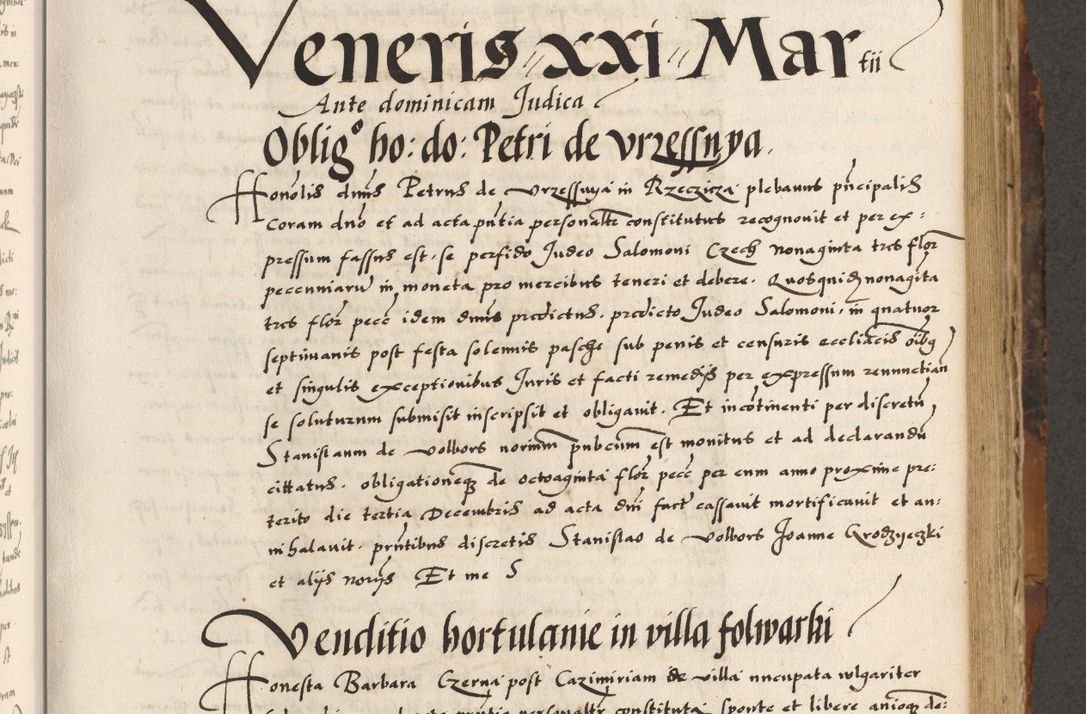 Veneris xxi Martii
Ante dominicam Judica
Oblig^o ho: do: Petri de Vrzessnya.
Honolis dnus Petrus de Vrzessnya in Rzeczicza plebanus pncipalis
Coram dno et ad acta pntia personalr constitutus recognovit et per ex:
pressum fassus est se perfido Judeo Salomoni Czech nonaginta tres flor
pecuniaru in moneta pro mercibus teneri et debere. Quosquid nonagita
tres flor pecc idem dnus predictus. predicto Judeo Salomoni. in quatuor
septimanis post festa solemnis pasche sub penis et censuris ecclicis oibq
et singulis exceptionibus Juris et facti remedys per expressum renunctian
se soluturum submisit inscripsit et obligavit. Et incotinenti per discretu
Stanislaum de Wolbors norium pubcum est monitus et ad declarandu
cittatus. obligationeq de octoaginta flor pecc per eum anno proxime pre:
terito die tertia Decembris ad acta dni fact cassavit mortificavit et an:
nihalavit. pntibus discretis Stanislao de Wolbors Joanne Grodzyeczki
et alys norys Et me S
Venditio hortulanie in villa folwarki
Honesta Barbara Czerna post Cazimiriam de villa nncupata wlgariter
pntia personalr constituta sponte et libere anioq de: